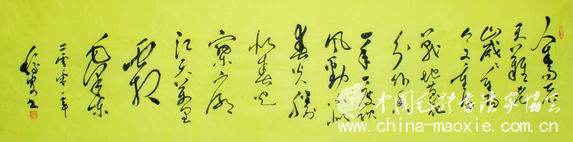 人生易老
天難老
岁岁重阳
今又重阳
战地黄花
分外香
一年一度秋
风劲不似
春光胜
似春光
寥廓
江天万里
霜
毛泽东
中国毛体书法家协会
www.china-maoxie.com.cn